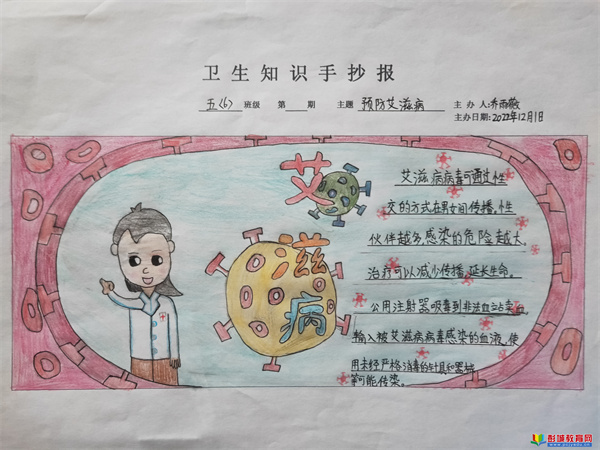 卫生知识手抄报
五(6) 班级 第 期 主题 预防艾滋病 主办人:乔雨
主办日期:2022年12月1日
艾滋病
艾滋病病毒可通过性
交的方式在男女间传播,性
伙伴越多感染的危险越大。
治疗可以减少传播,延长生命。
公用注射器吸毒到非法血站卖血
输入被艾滋病病毒感染的血液,使
用未经严格消毒的针具和器械
等可能传染。
彭城教育网